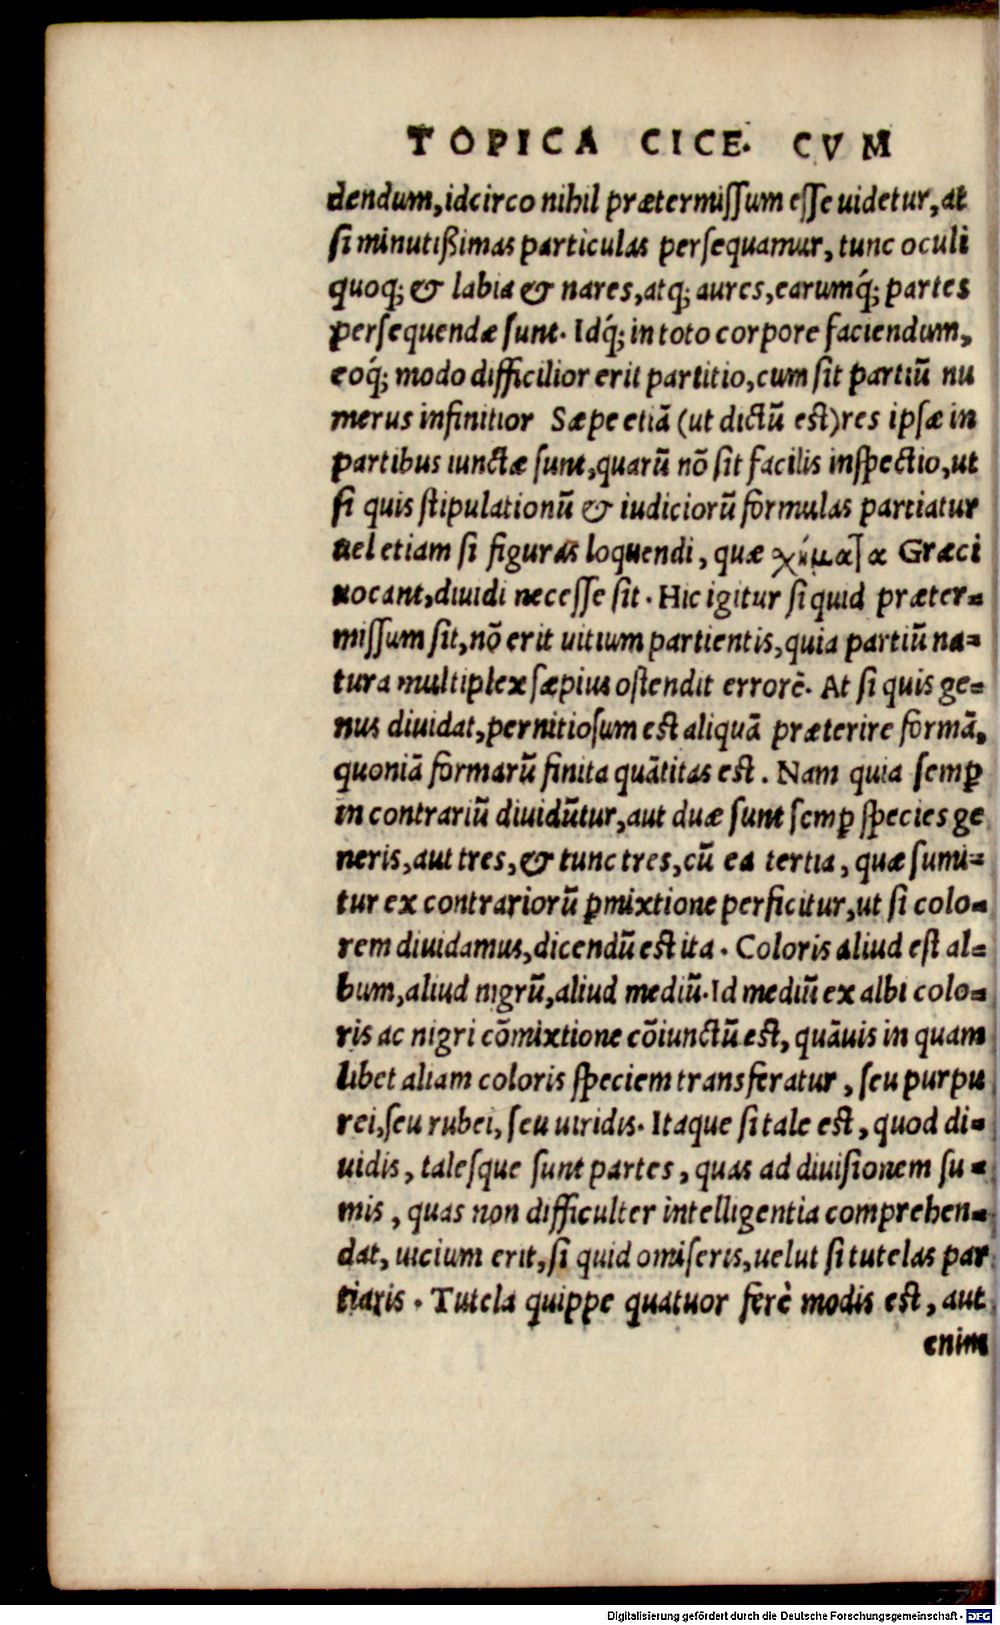 TOPICA CICE. CVM
dendum, idcirco nihil prætermissum esse uidetur, at
si minutißimas particulas persequamur, tunc oculi
quoq; & labia & nares, atq; aures, earumq́; partes
persequendæ sunt. Idq́; in toto corpore faciendum,
eoq́; modo difficilior erit partitio, cum sit partiũ nu
merus infinitior Sæpe etiã (ut dictũ est) res ipsæ in
partibus iunctæ sunt, quarũ nõ sit facilis inspectio, ut
si quis stipulationũ & iudiciorũ formulas partiatur
uel etiam si figuras loquendi, quæ Græci
uocant, diuidi necesse sit. Hic igitur si quid præter-
missum sit, nõ erit uitium partientis, quia partiũ na-
tura multiplex sæpius ostendit errorẽ. At si quis ge-
nus diuidat, pernitiosum est aliquã præterire formã,
quoniã formarũ finita quãtitas est. Nam quia semꝑ
in contrariũ diuidũtur, aut duæ sunt semꝑ species ge
neris, aut tres, & tunc tres, cũ ea tertia, quæ sumi-
tur ex contrariorũ ꝑmixtione perficitur, ut si colo-
rem diuidamus, dicendũ est ita. Coloris aliud est al-
bum, aliud nigrũ, aliud mediũ. Id mediũ ex albi colo-
ris ac nigri cõmixtione cõiunctũ est, quãuis in quam
libet aliam coloris speciem transferatur, seu purpu
rei, seu rubei, seu uiridis. Itaque si tale est, quod di-
uidis, talesque sunt partes, quas ad diuisionem su-
mis, quas non difficulter intelligentia comprehen-
dat, uicium erit, si quid omiseris, uelut si tutelas par
tiaris. Tutela quippe quatuor ferè modis est, aut
enim
Digitalisierung gefördert durch die Deutsche Forschungsgemeinschaft - DFG